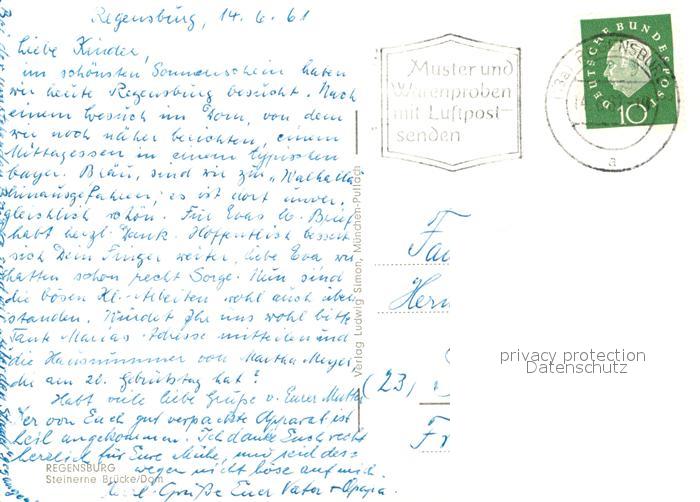 Regensburg, 14.6.61
Liebe Kinder,
im schönsten Sonnenschein haben
wir heute Regensburg besucht. Nach
einem Besuch im Dom, von dem
wir noch näher berichten, einem
Mittagessen in einem typischen
bayer. Bräu, sind wir zur "Walhalla"
hinausgefahren; es ist dort unver-
gleichlich schön. Für Evas lb. Brief
habt herzl. Dank. Hoffentlich bessert
sich Dein Finger weiter, liebe Eva wir
hatten schon recht Sorge. Nun sind
die bösen Kl.-Arbeiten wohl auch über-
standen. Würdet Ihr uns wohl bitte
Tante Marias Adresse mitteilen und
die Hausnummer von Martha Meyer,
die am 20. Geburtstag hat?
Habt viele liebe Grüße v. Eurer Mutter
Der von Euch gut verpackte Apparat ist
heil angekommen. Ich danke Euch recht
herzlich für Eure Mühe, und seid des-
wegen nicht böse auf mich.
Grüße Euer Vater + Opapa.
REGENSBURG
Steinerne Brücke/Dom
Verlag Ludwig Simon, München-Pullach
Muster und
Warenproben
mit Luftpost-
senden
DEUTSCHE BUNDESPOST
10
a
Fa
Her
(23)
Fr
privacy protection
Datenschutz